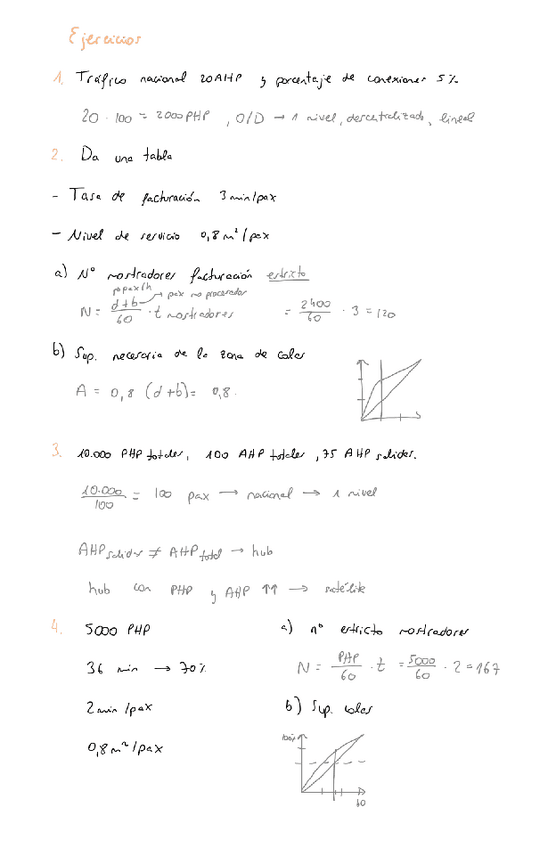 Ejercicios
1. Tráfico nacional 20AHP y porcentaje de conexiones 5%
20 · 100 = 2000PHP, O/D → 1 nivel, descentralizado, lineal
2. Da una tabla
- Tasa de facturación 3min/pax
- Nivel de servicio 0,8 m²/pax
a) Nº mostradores facturación estricto
pax/h → pax no procesados
N = d+b/60 · t mostradores = 2400/60 · 3 = 120
b) Sup. necesaria de la zona de colas
A = 0,8 (d+b) = 0,8·
3. 10.000 PHP totales, 100 AHP totales, 75 AHP salidas.
10.000/100 = 100 pax → nacional → 1 nivel
AHP salidas ≠ AHP total → hub
hub con PHP y AHP ↑↑ → satélite
4. 5000 PHP
36 min → 70%
2min/pax
0,8m²/pax
a) nº estricto mostradores
N = PHP/60 · t = 5000/60 · 2 = 167
b) Sup. colas
60